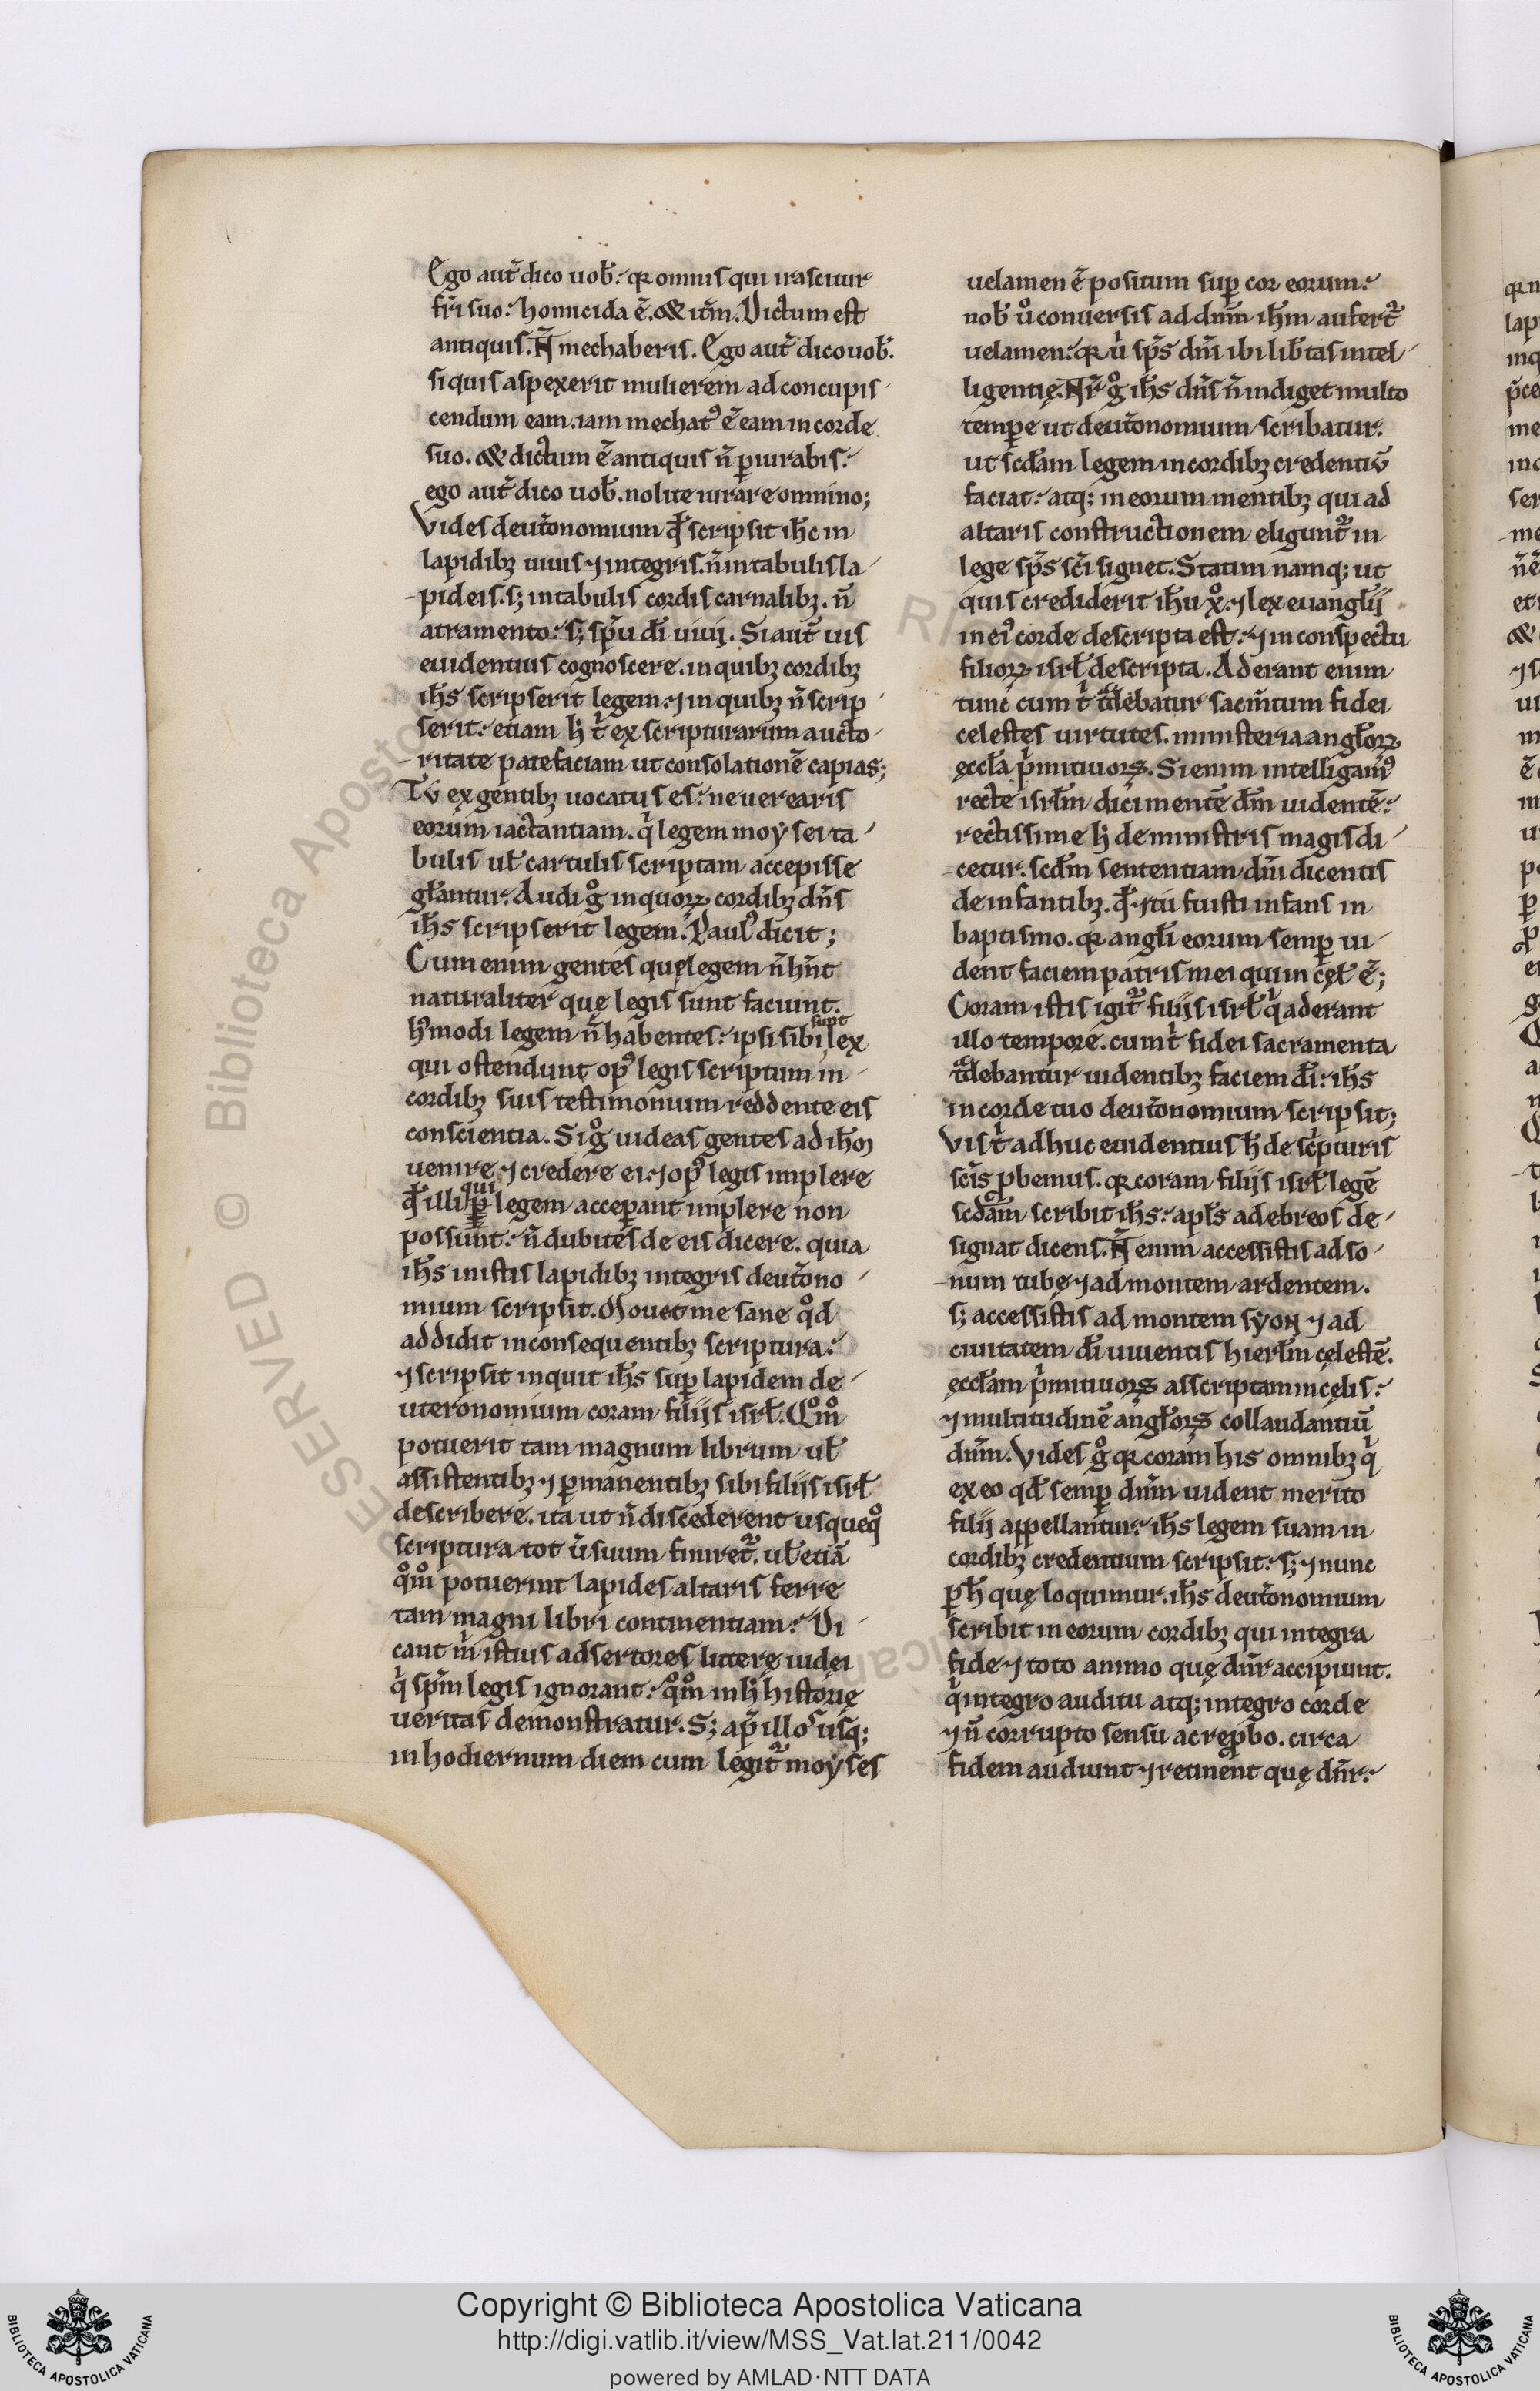 Ego aut̃ dico uob̃. qꝛ omnis qui irascitur
fr̃i suo. homicida ẽ. & it̃m. Dictum est
antiquis. Ñ mechaberis. Ego aut̃ dico uob̃.
si quis aspexerit mulierem ad concupis
cendum eam. iam mechatꝰ ẽ eam in corde
suo. & dictum ẽ antiquis ñ ꝑiurabis.
ego aut̃ dico uob̃. nolite iurare omnino;
Vides deut̃onomium qđ scripsit ih̃c in
lapidibꝫ uiuis ⁊ integris. ñ in tabulis la
pideis. sꝫ in tabulis cordis carnalibꝫ. ñ
atramento. sꝫ sp̃u dĩ uiui. Si aut̃ uis
euidentius cognoscere. in quibꝫ cordibꝫ
ih̃s scripserit legem. ⁊ in quibꝫ ñ scrip
serit. etiam h̵ tⁱ ex scripturarum aucto
ritate patefaciam ut consolationẽ capias;
Tu ex gentibꝫ uocatus es. ne uerearis
eorum iactantiam. qⁱ legem moysei ta
bulis ul̃ cartulis scriptam accepisse
gl̃antur. Audi gͦ in quoꝝ cordibꝫ dñs
ih̃s scripserit legem. Paulꝰ dicit;
Cum enim gentes quę legem ñ hñt
naturaliter quę legis sunt faciunt.
hꝰmodi legem ñ habentes. ipsi sibi sunt lex
qui ostendunt opꝰ legis scriptum in
cordibꝫ suis testimonium reddente eis
conscientia. Si gͦ uideas gentes ad ih̃m
uenire ⁊ credere ei. ⁊ opꝰ legis implere
qđ illi qui ꝑ legem acceꝑant implere non
possunt. ñ dubites de eis dicere. quia
ih̃s in istis lapidibꝫ integris deut̃ono
mium scripsit. Mouet me sane qͦd
addidit in consequentibꝫ scriptura.
⁊ scripsit inquit ih̃s suꝑ lapidem de
uteronomium coram filiis isrł. Qͦmͦ
potuerit tam magnum librum ul̃
assistentibꝫ ⁊ ꝑmanentibꝫ sibi filiis isrł
describere. ita ut ñ discederent usquequͦ
scriptura tot ũsuum finiret᷑. ul̃ etiã
qͦmͦ potuerint lapides altaris ferre
tam magni libri continentiam. Di
cant mⁱ istius adsertores litterę iudei
qⁱ sp̃m legis ignorant. qͦmͦ in h̵ historię
ueritas demonstratur. Sꝫ ap̃ illos usqꝫ
in hodiernum diem cum legit᷑ moyses
uelamen ẽ positum suꝑ cor eorum.
nob̃ uͦ conuersis ad dñm ih̃m aufert᷑
uelamen. qꝛ uⁱ sp̃s dñi ibi lib̃tas intel
ligentię. Nr̃ gͦ ih̃s dñs ñ indiget multo
temꝑe ut deut̃onomium scribatur.
ut sc̃dam legem in cordibꝫ credentiũ
faciat. atqꝫ in eorum mentibꝫ qui ad
altaris constructionem eligunt᷑ in
lege sp̃s sc̃i signet. Statim namqꝫ ut
quis crediderit ih̃u xͦ. ⁊ lex euangl̃ii
in eiꝰ corde descripta est. ⁊ in conspectu
filioꝝ isrł descripta. Aderant enim
tunc cum tⁱ tᵃdebatur sacm̃tum fidei
celestes uirtutes. ministeria angl̃oꝝ
ęccl̃a pⁱmitiuoꝝ. Si enim intelligamꝰ
recte isrl̃m dici mentẽ dm̃ uidentẽ.
rectissime h̵ de ministris magis di
cetur. scd̃m sententiam dñi dicentis
de infantibꝫ. qđ ⁊ tu fuisti infans in
baptismo. qꝛ angl̃i eorum semꝑ ui
dent faciem patris mei qui in cęł ẽ;
Coram istis igit᷑ filiis isrł qⁱ aderant
illo tempore. cum tⁱ fidei sacramenta
tᵃdebantur uidentibꝫ faciem dĩ. ih̃s
in corde tuo deut̃onomium scripsit;
Vis tⁱ adhuc euidentius h̵ de scⁱpturis
sc̃is ꝓbemus. qꝛ coram filiis isrł legẽ
scdãm scribit ih̃s. apl̃s ad ebreos de
signat dicens. Ñ enim accessistis ad so
num tubę ⁊ ad montem ardentem.
sꝫ accessistis ad montem syon ⁊ ad
ciuitatem dĩ uiuentis hierl̃m cęlestẽ.
ęccl̃am pⁱmitiuoꝝ asscriptam in cęlis.
⁊ multitudinẽ angl̃oꝝ collaudantiũ
dñm. Vides gͦ qꝛ coram his omnibꝫ qⁱ
ex eo qđ semꝑ dñm uident merito
filii appellantur. ih̃s legem suam in
cordibꝫ credentium scripsit. sꝫ ⁊ nunc
ꝑ h̵ quę loquimur. ih̃s deut̃onomium
scribit in eorum cordibꝫ qui integra
fide ⁊ toto animo quę dñr accipiunt.
qⁱ integro auditu atqꝫ integro corde
⁊ ñ corrupto sensu ac reꝓbo. circa
fidem audiunt ⁊ retinent quę dñr.
Copyright © Biblioteca Apostolica Vaticana
http://digi.vatlib.it/view/MSS_Vat.lat.211/0042
powered by AMLAD·NTT DATA